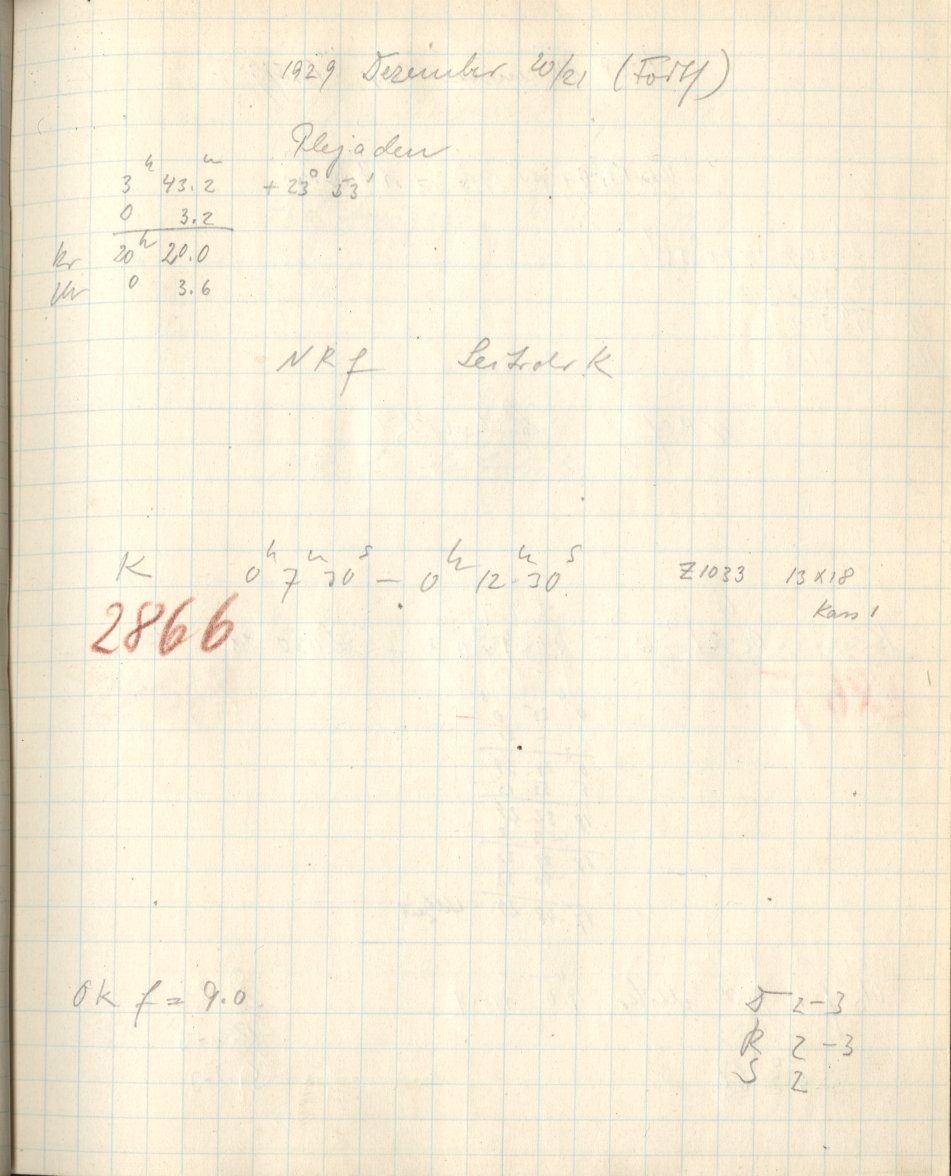 1929 Dezember 20/21 (Forts)
Plejaden
3h 43.2m + 23° 53'
0 3.2
Kr 20h 20.0
Uhr 0 3.6
NRf Seitzder K
K 0h 7m 30s — 0h 12m 30s Z1033 13x18
Kass 1
2866
OK f = 9.0
D 2-3
R 2-3
S 2